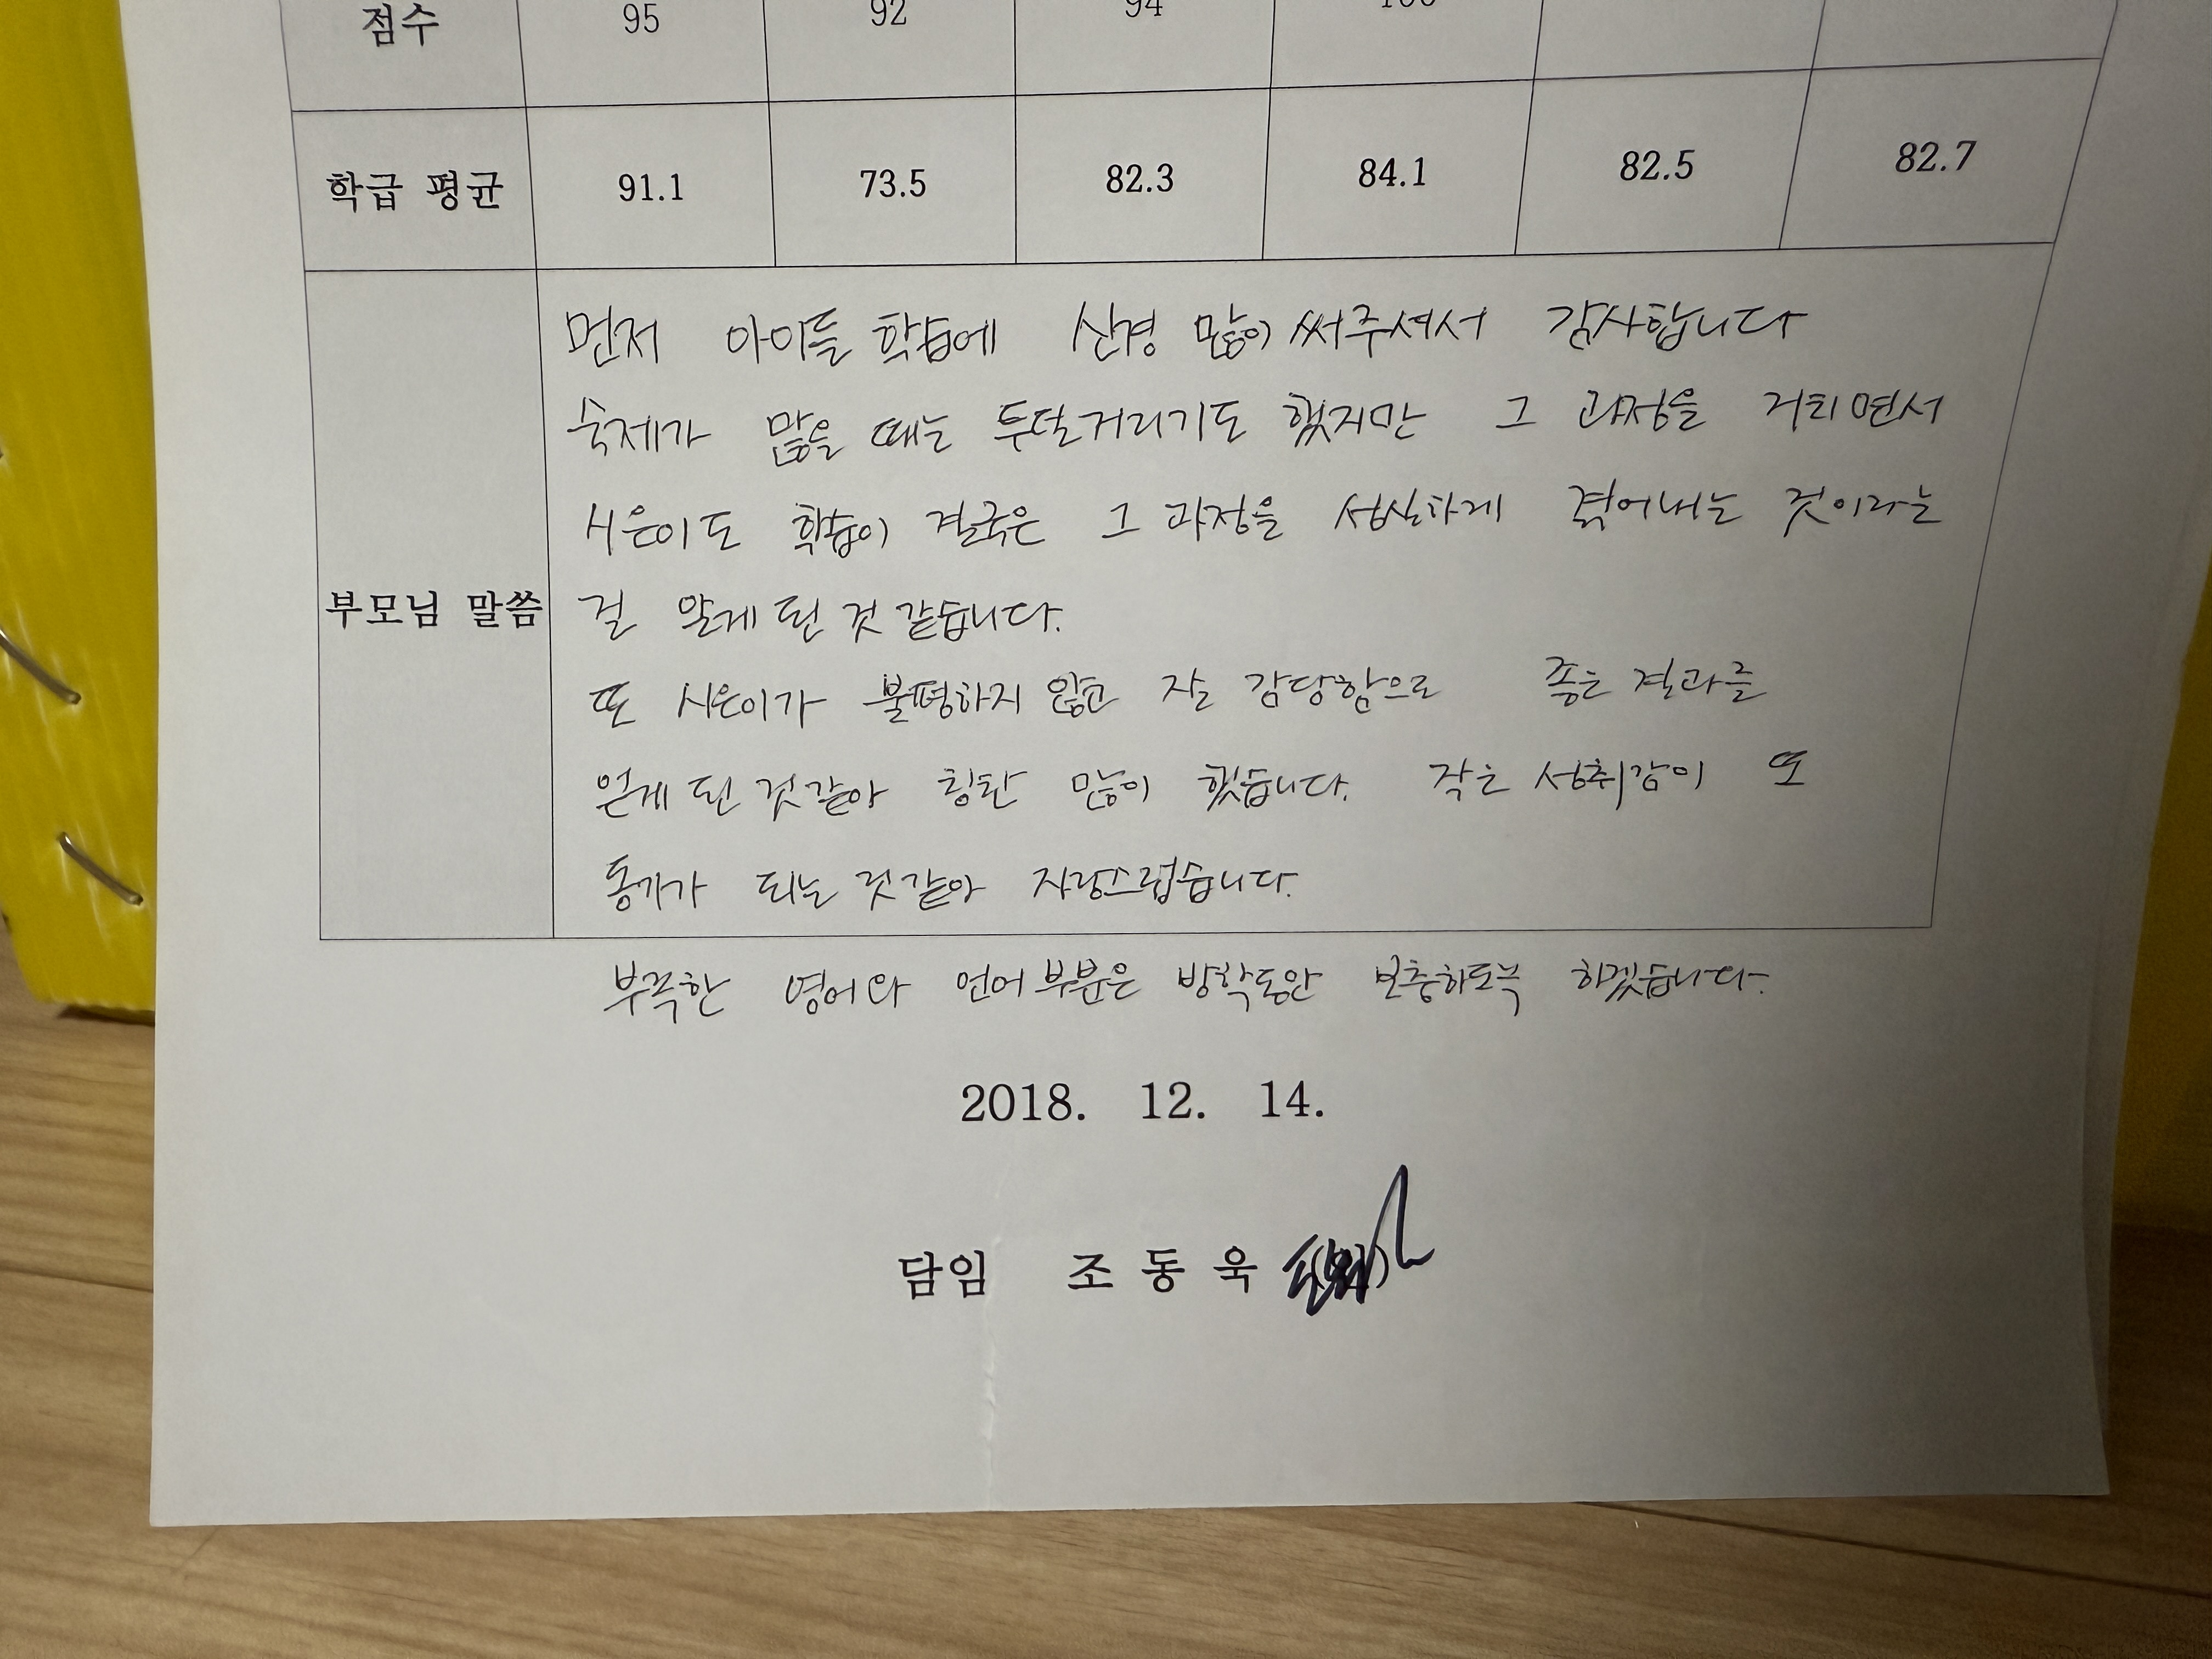 점수 95 92 94 100
학급 평균 91.1 73.5 82.3 84.1 82.5 82.7
부모님 말씀
먼저 아이들 학습에 신경 많이 써주셔서 감사합니다
숙제가 많을 때는 투덜거리기도 했지만 그 과정을 거치면서
시은이도 학습이 결국은 그 과정을 성실하게 겪어내는 것이라는
걸 알게 된 것 같습니다.
또 시은이가 불평하지 않고 잘 감당함으로 좋은 결과를
얻게 된 것 같아 칭찬 많이 했습니다. 작은 성취감이 또
동기가 되는 것 같아 자랑스럽습니다.
부족한 영어와 언어 부분은 방학동안 보충하도록 하겠습니다.
2018. 12. 14.
담임 조 동 욱